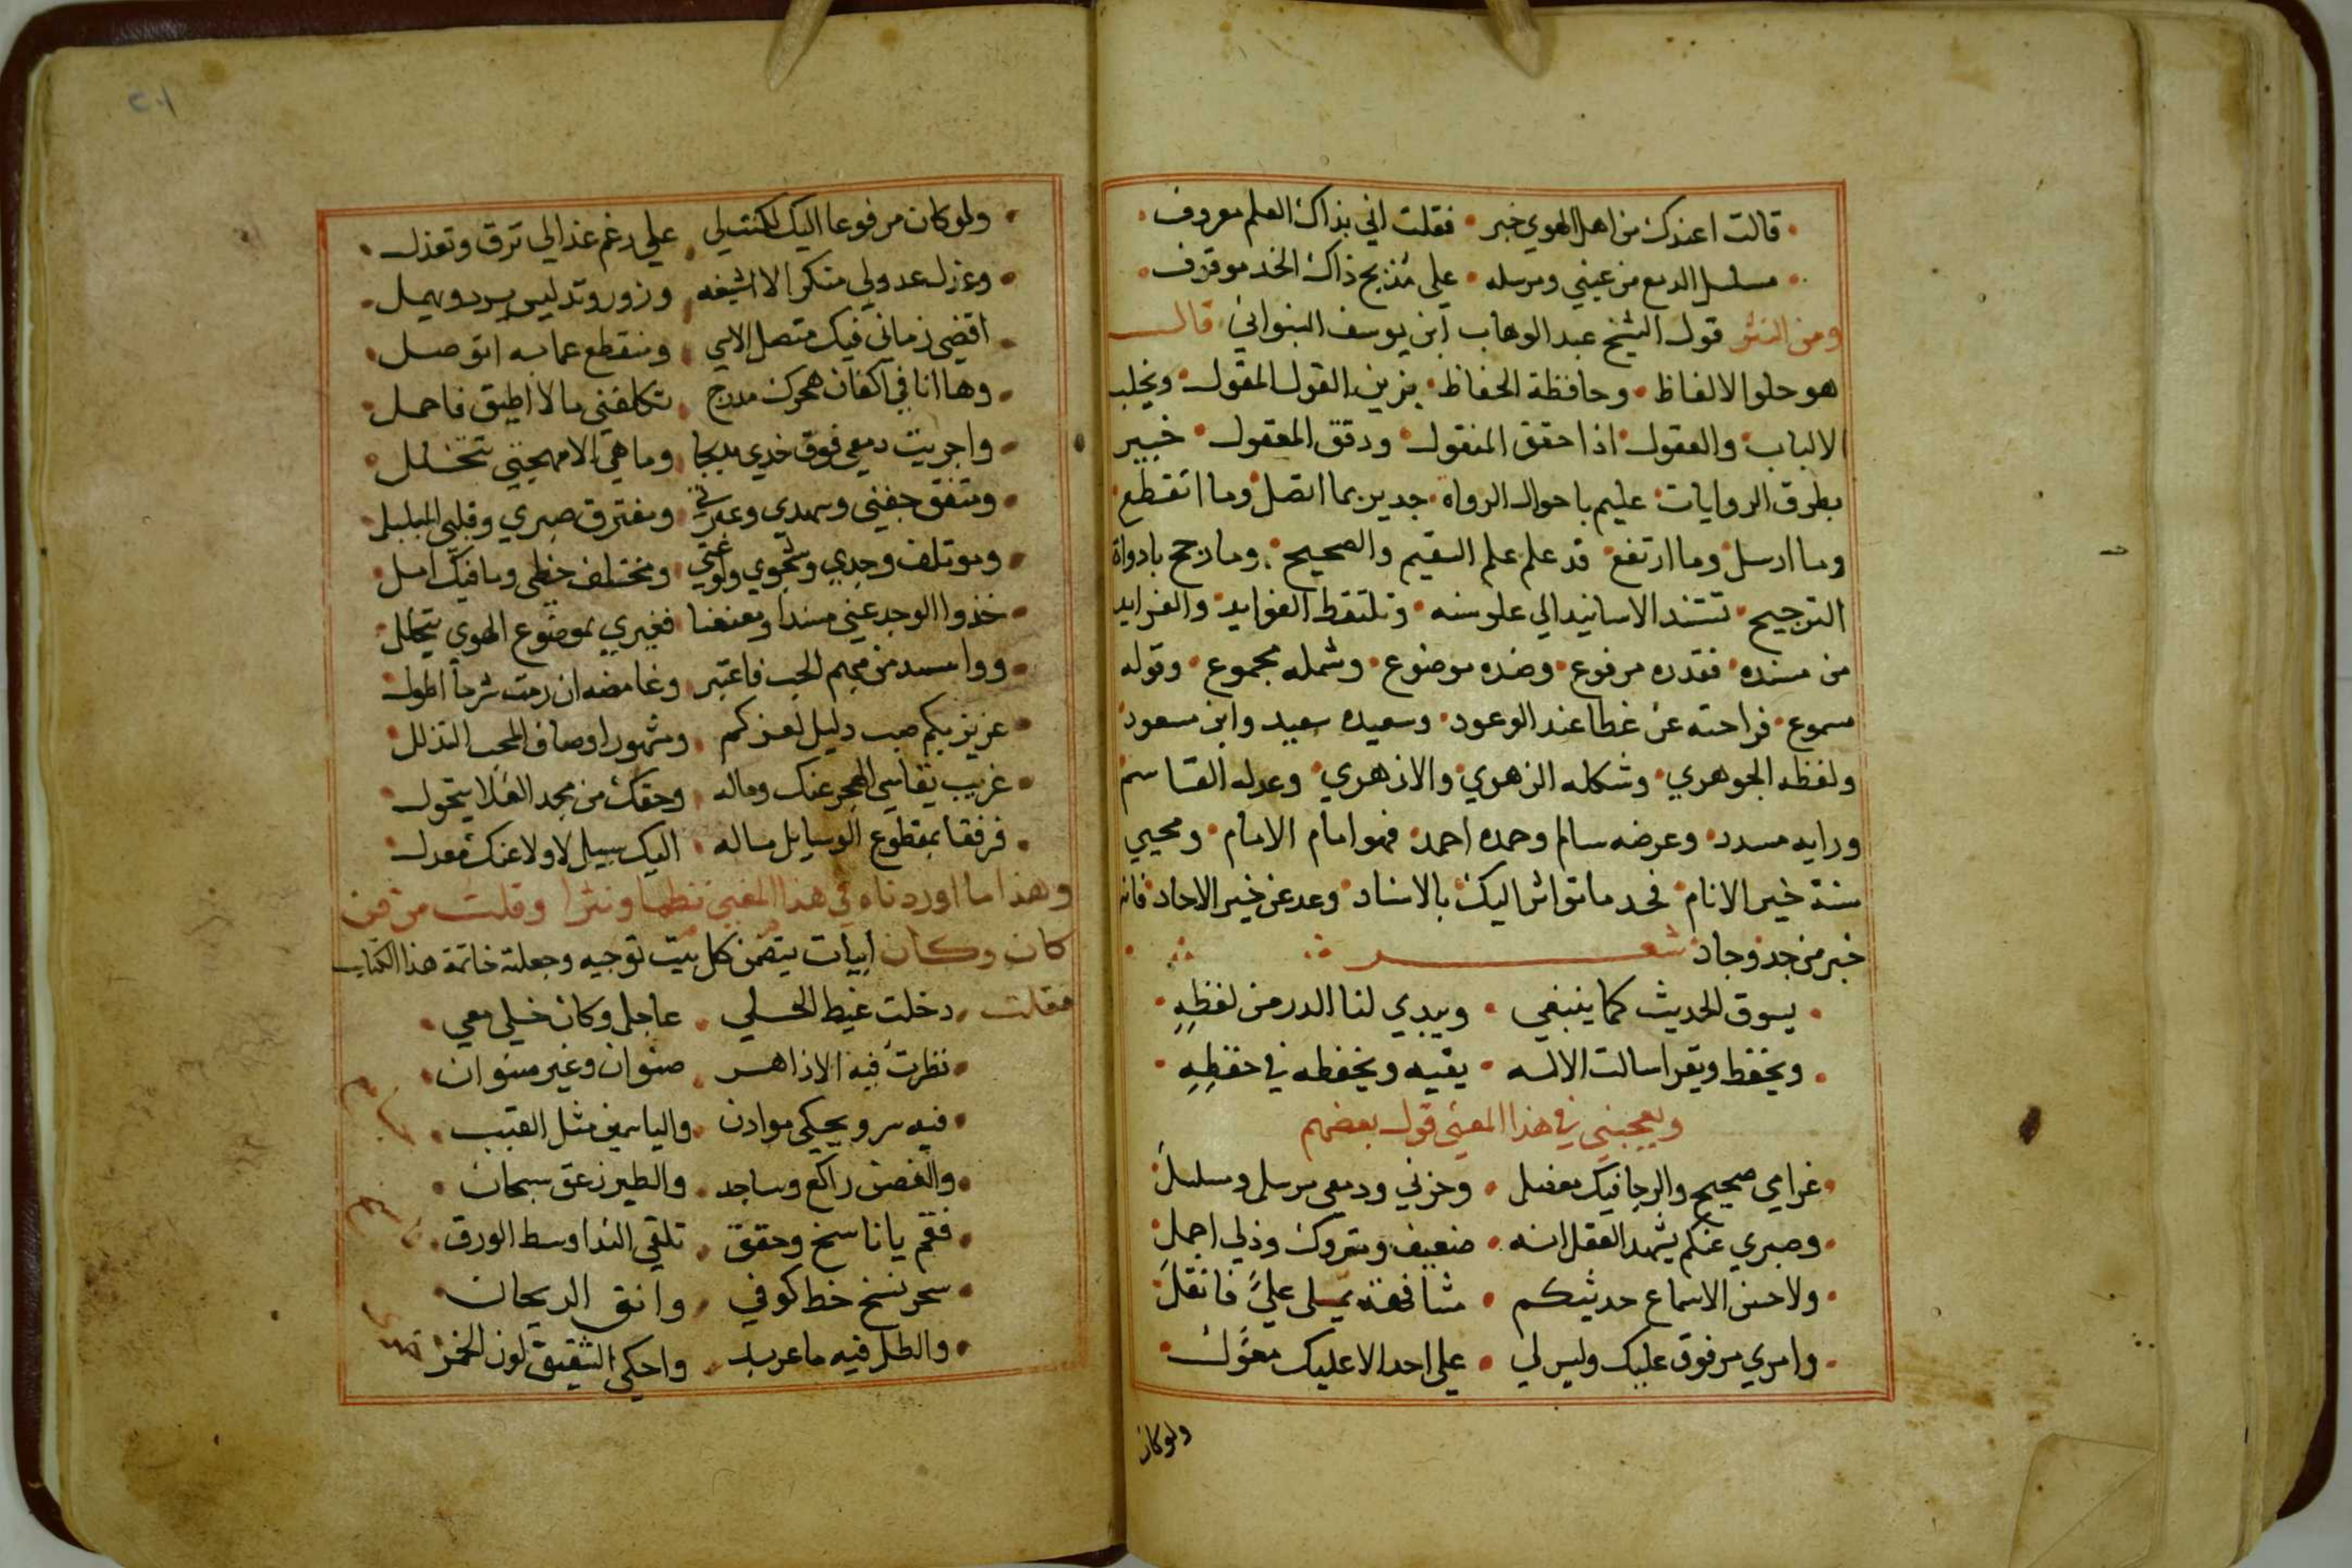 قالت اعندك من اهل الهوي خبر • فقلت اني بذاك العلم معروف
مسلسل الدمع من عيني ومرسله • على مذبح ذاك الخد موقوف
ومن النثر قول الشيخ عبد الوهاب ابن يوسف البنواني قال
هو حلو الالفاظ • وحافظة الحفاظ • يزين القول المقول • ويخلب
الالباب • والعقول • اذا حقق المنقول • ودقق المعقول • خبير
بطرق الروايات • عليم باحوال الرواة • جدير بما اتصل وما انقطع
وما ارسل وما ارتفع • قد علم علم السقيم والصحيح • وما رجح بادواة
الترجيح • تستند الاسانيد الي علو سنه • وتلتقط الفوايد • والفرايد
من مسنده • فقدره مرفوع • وضده موضوع • وشمله مجموع • وقوله
مسموع • فراحته عن عطا عند الوعود • وسعيده سعيد وابن مسعود
ولفظه الجوهري • وشكله الزهري • والازهري • وعدله القاسم
ورايه مسدد • وعرضه سالم وحمده احمد • فهو امام الامام • ومحيي
سنة خير الانام • فحد ما تواتر اليك بالاسناد • وعد عن خبر الاحاد • فانه
خبر من جد وجاد شعر
يسوق الحديث كما ينبغي • ويبدي لنا الدر من لفظه
ويحفظ ويقرا سالت الاله • يقيه ويحفظه في حفظه
ويعجبني في هذا المعني قول بعضهم
غرامي صحيح والرجا فيك معضل • وحزني ودمعي مرسل ومسلسل
وصبري عنكم يشهد العقل انه • ضعيف ومتروك وذلي اجمل
ولا حسن الاسماع حديثكم • مشافهة يملى علي فانقل
وامري موقوف عليك وليس لي • على احد الا عليك معول
ولو كان
٢٠١
ولو كان مرفوعا اليك لكنت لي • علي رغم عذالي ترق وتعذل
وعزل عدولي منكر لا اشيعه • وزور وتدليس يرد ويهمل
اقضي زماني فيك متصل الاسي • ومنقطع عما به اتوصل
وها انا في اكفان هجرك مدرج • تكلفني ما لا اطيق فاحمل
واجريت دمعي فوق خدي مدبجا • وما هي الا مهجتي تتخلل
ومتفق جفني وسهدي وعبرتي • ومفترق صبري وقلبي المبلبل
وموتلف وجدي وشجوي ولوعتي • ومختلف حظي وما فيك امل
خذوا الوجد عني مسندا ومعنعنا • فغيري بموضوع الهوي يتحلل
مبهم الحب فاعتبر • وغامضه ان رمت شرحا اطول
عزيز بكم صب دليل لعزكم • ومشهور اوصاف المحب التذلل
غريب يقاسي الهجر عنك وماله • وحقك من مجد العلا يتحول
فرفقا بمقطوع الوسايل ماله • اليك سبيل لا ولا عنك معدل
وهذا ما اوردناه في هذا المعني نظما ونثرا وقلت من فن
كان وكان ابيات يتضمن كل بيت توجيه وجعلته خاتمة هذا الكتاب
فقلت • دخلت غيط الخلي • عاجل وكان خلي معي
نظرت فيه الازاهر • صنوان وغير صنوان
فيه سرو يحكي موادن • والياسمين مثل القبب
والغصن راكع وساجد • والطير زعق سبحان
فقم يا ناسخ وحقق • تلقي الندا وسط الورق
سحر نسخ خط كوفي • وانق الريحان
والطل فيه ما عربد • واحكي الشقيق لون الخمر